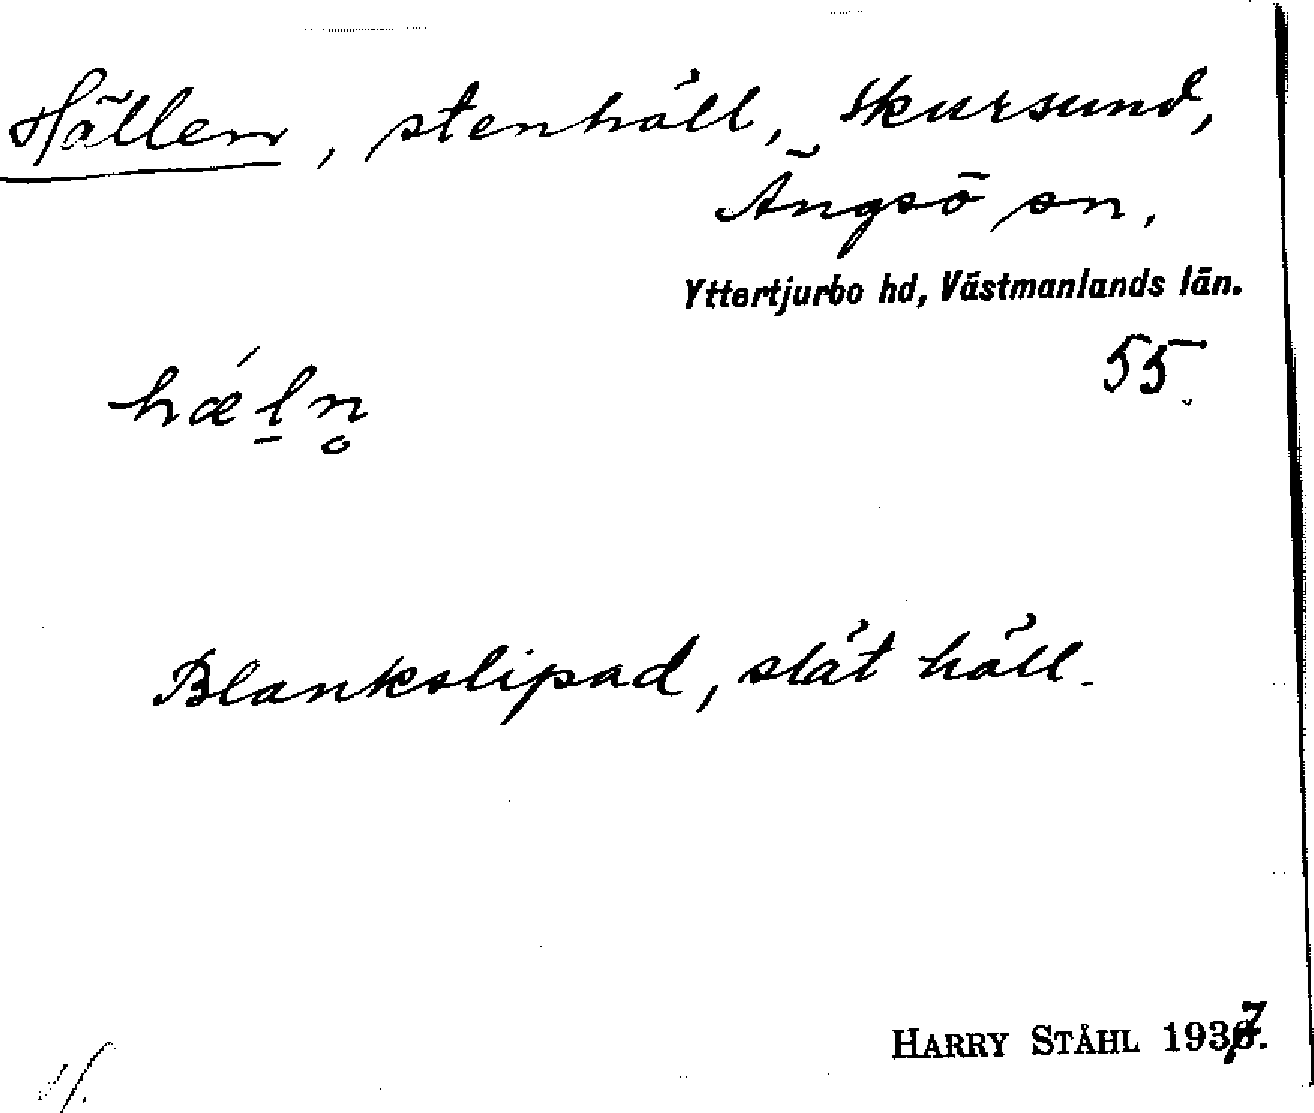 Hällen, stenhäll, Skursund,
Ängsö sn,
Yttertjurbo hd, Västmanlands län.
55.
hǽl̠n̥
Blankslipad, slät häll.
HARRY STÅHL 1937.